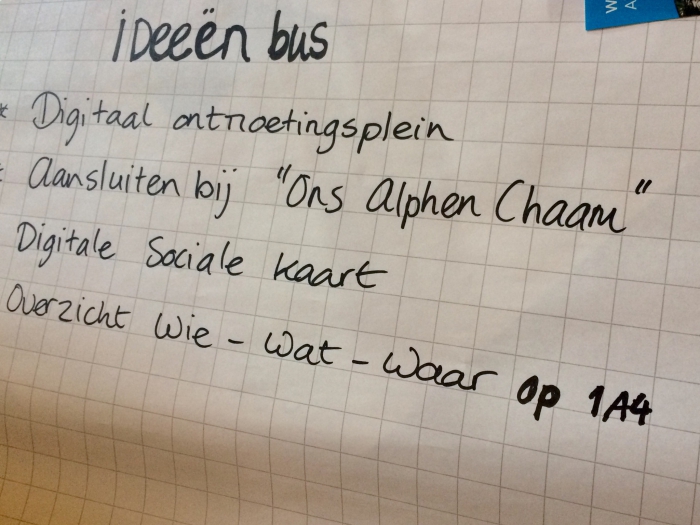 ideeën bus
* Digitaal ontmoetingsplein
* Aansluiten bij "Ons Alphen Chaam"
Digitale Sociale kaart
Overzicht Wie - Wat - Waar op 1A4